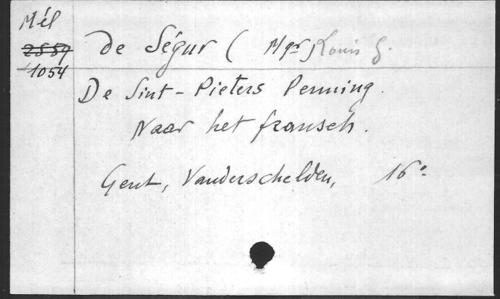 Mél
2559
1054
de Ségur (Mgr) Louis G.
De Sint-Pieters Penning.
Naar het fransch.
Gent, Vanderschelden, 16°